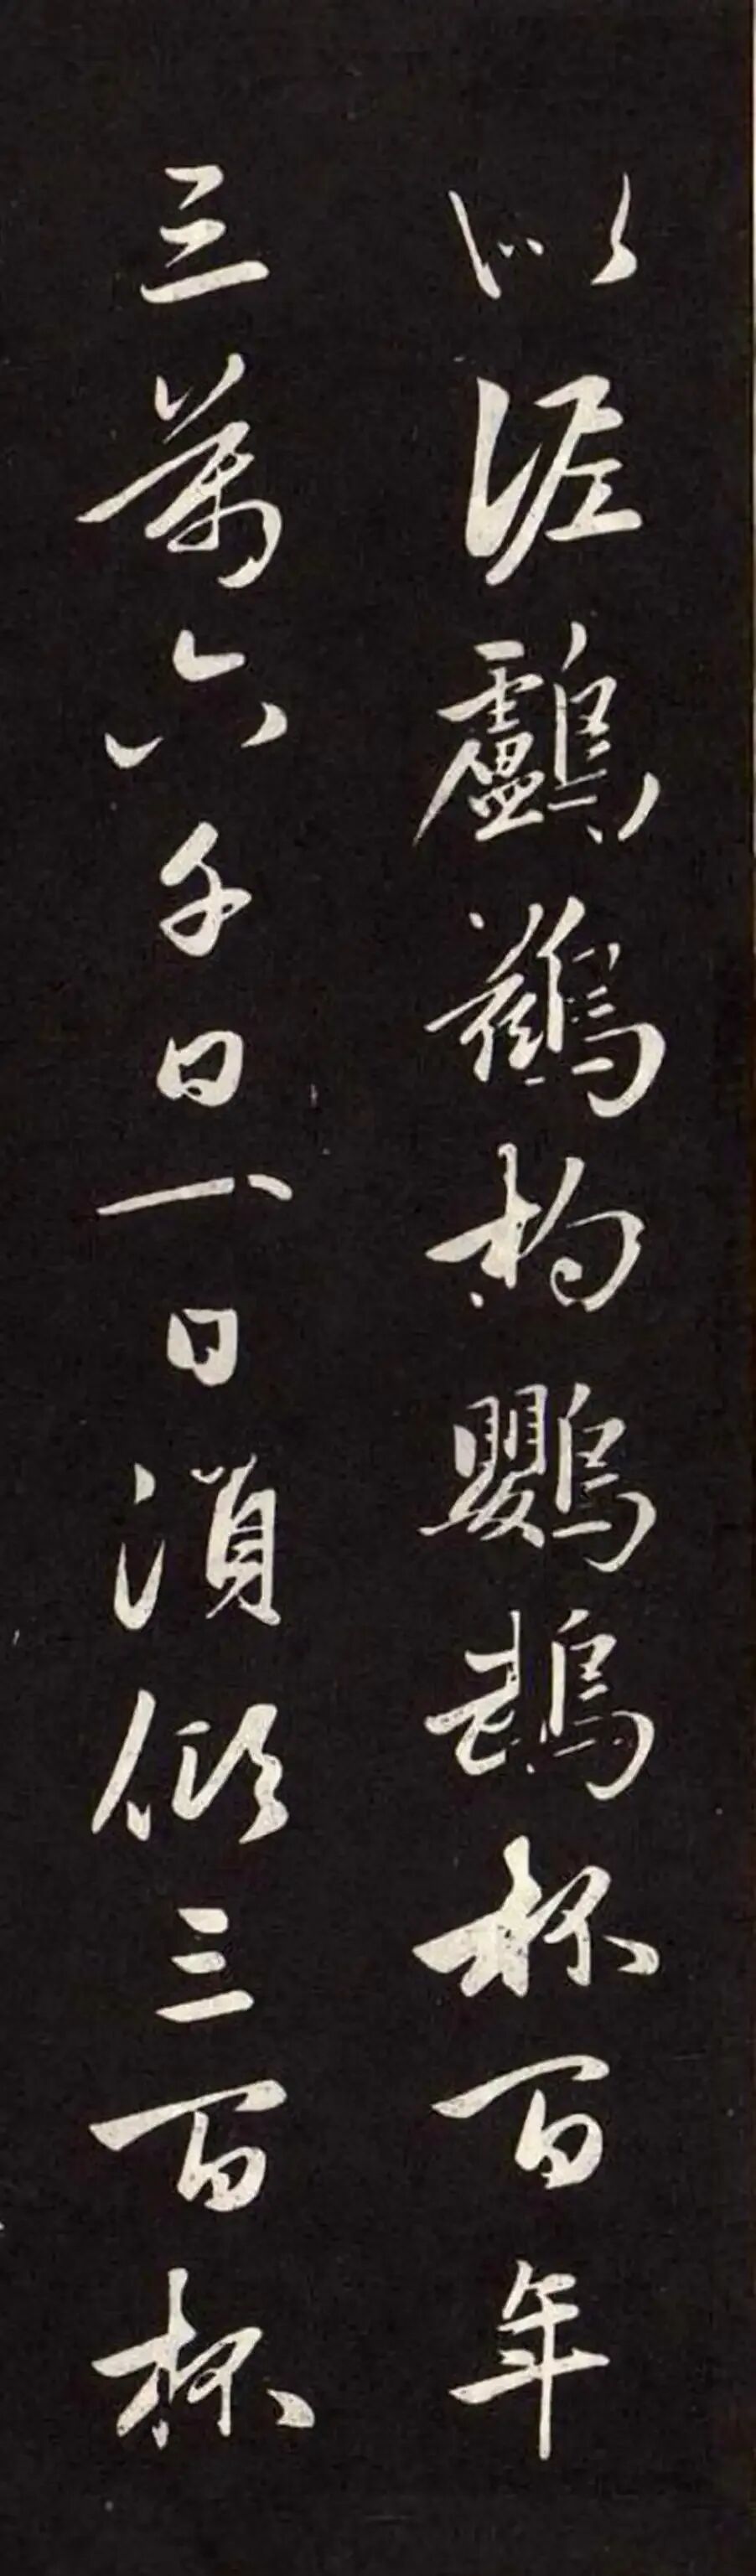 以泥鸕鶿杓鸚鵡杯百年
三萬六千日一日須傾三百杯